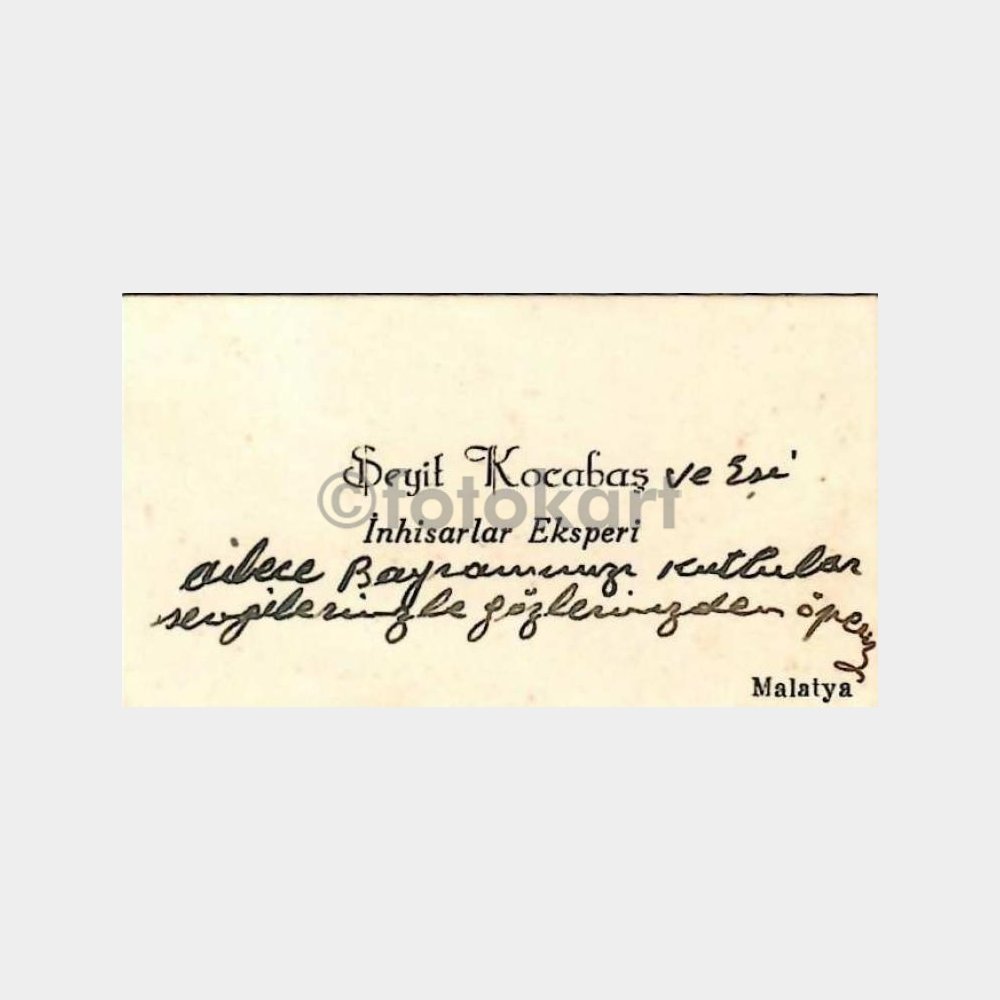 Seyit Kocabaş ve Eşi
©fotokart
İnhisarlar Eksperi
ailece Bayramınızı kutlular
sevgilerimizle gözlerinizden öperiz
Malatya